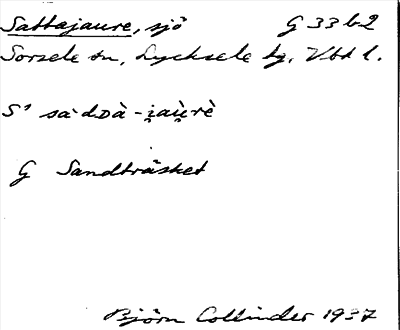 Sattajaure, sjö G 33 b2
Sorsele sn, Lycksele tg. Vbt l.
S¹ sa·dᴅà-i̯aùrè
G Sandträsket
Björn Collinder 1937